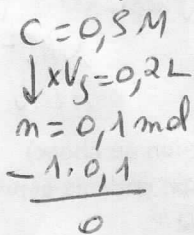 C = 0,5 M
↓ xVs = 0,2 L
n = 0,1 mol
- 1. 0,1
0